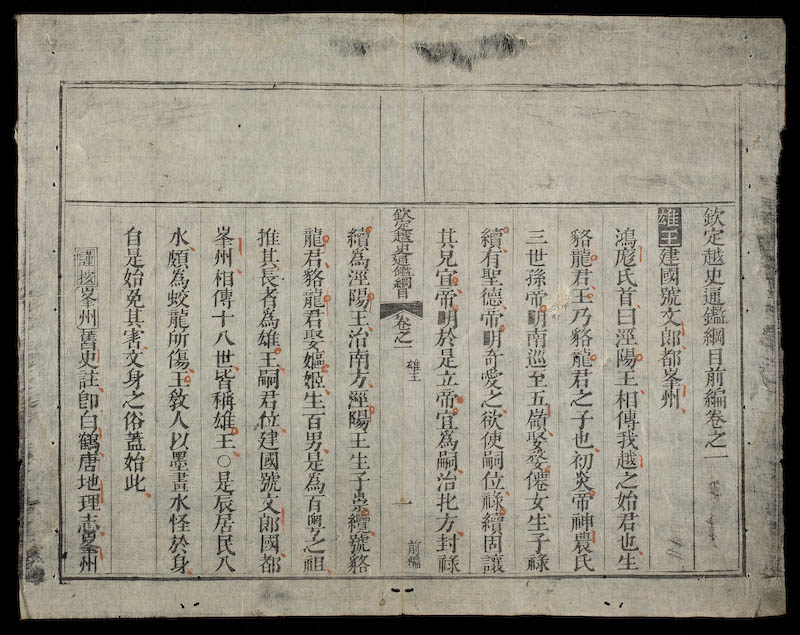 欽定越史通鑑綱目前編卷之一
雄王建國號文郎都峯州
鴻厖氏首曰涇陽王相傳我越之始君也生
貉龍君王乃貉龍君之子也初炎帝神農氏
三世孫帝明南巡至五嶺娶婺僊女生子祿
續有聖德帝明奇愛之欲使嗣位祿續固讓
其兄宜帝明於是立帝宜為嗣治北方封祿
欽定越史通鑑綱目 卷之一 雄王 一 前編
續為涇陽王治南方涇陽王生子崇纜號貉
龍君貉龍君娶嫗姬生百男是為百粵之祖
推其長者為雄王嗣君位建國號文郎國都
峯州相傳十八世皆稱雄王○是辰居民入
水頗為蛟龍所傷王教人以墨畫水怪於身
自是始免其害文身之俗蓋始此
謹按峯州舊史註即白鶴唐地理志峯州